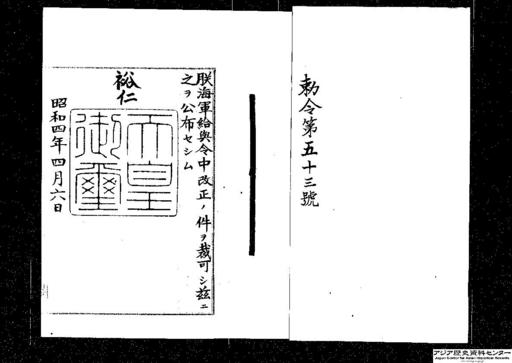 勅令第五十三號
朕海軍給與令中改正ノ件ヲ裁可シ茲ニ
之ヲ公布セシム
裕仁
天皇
御璽
昭和四年四月六日
アジア歴史資料センター
Japan Center for Asian Historical Records